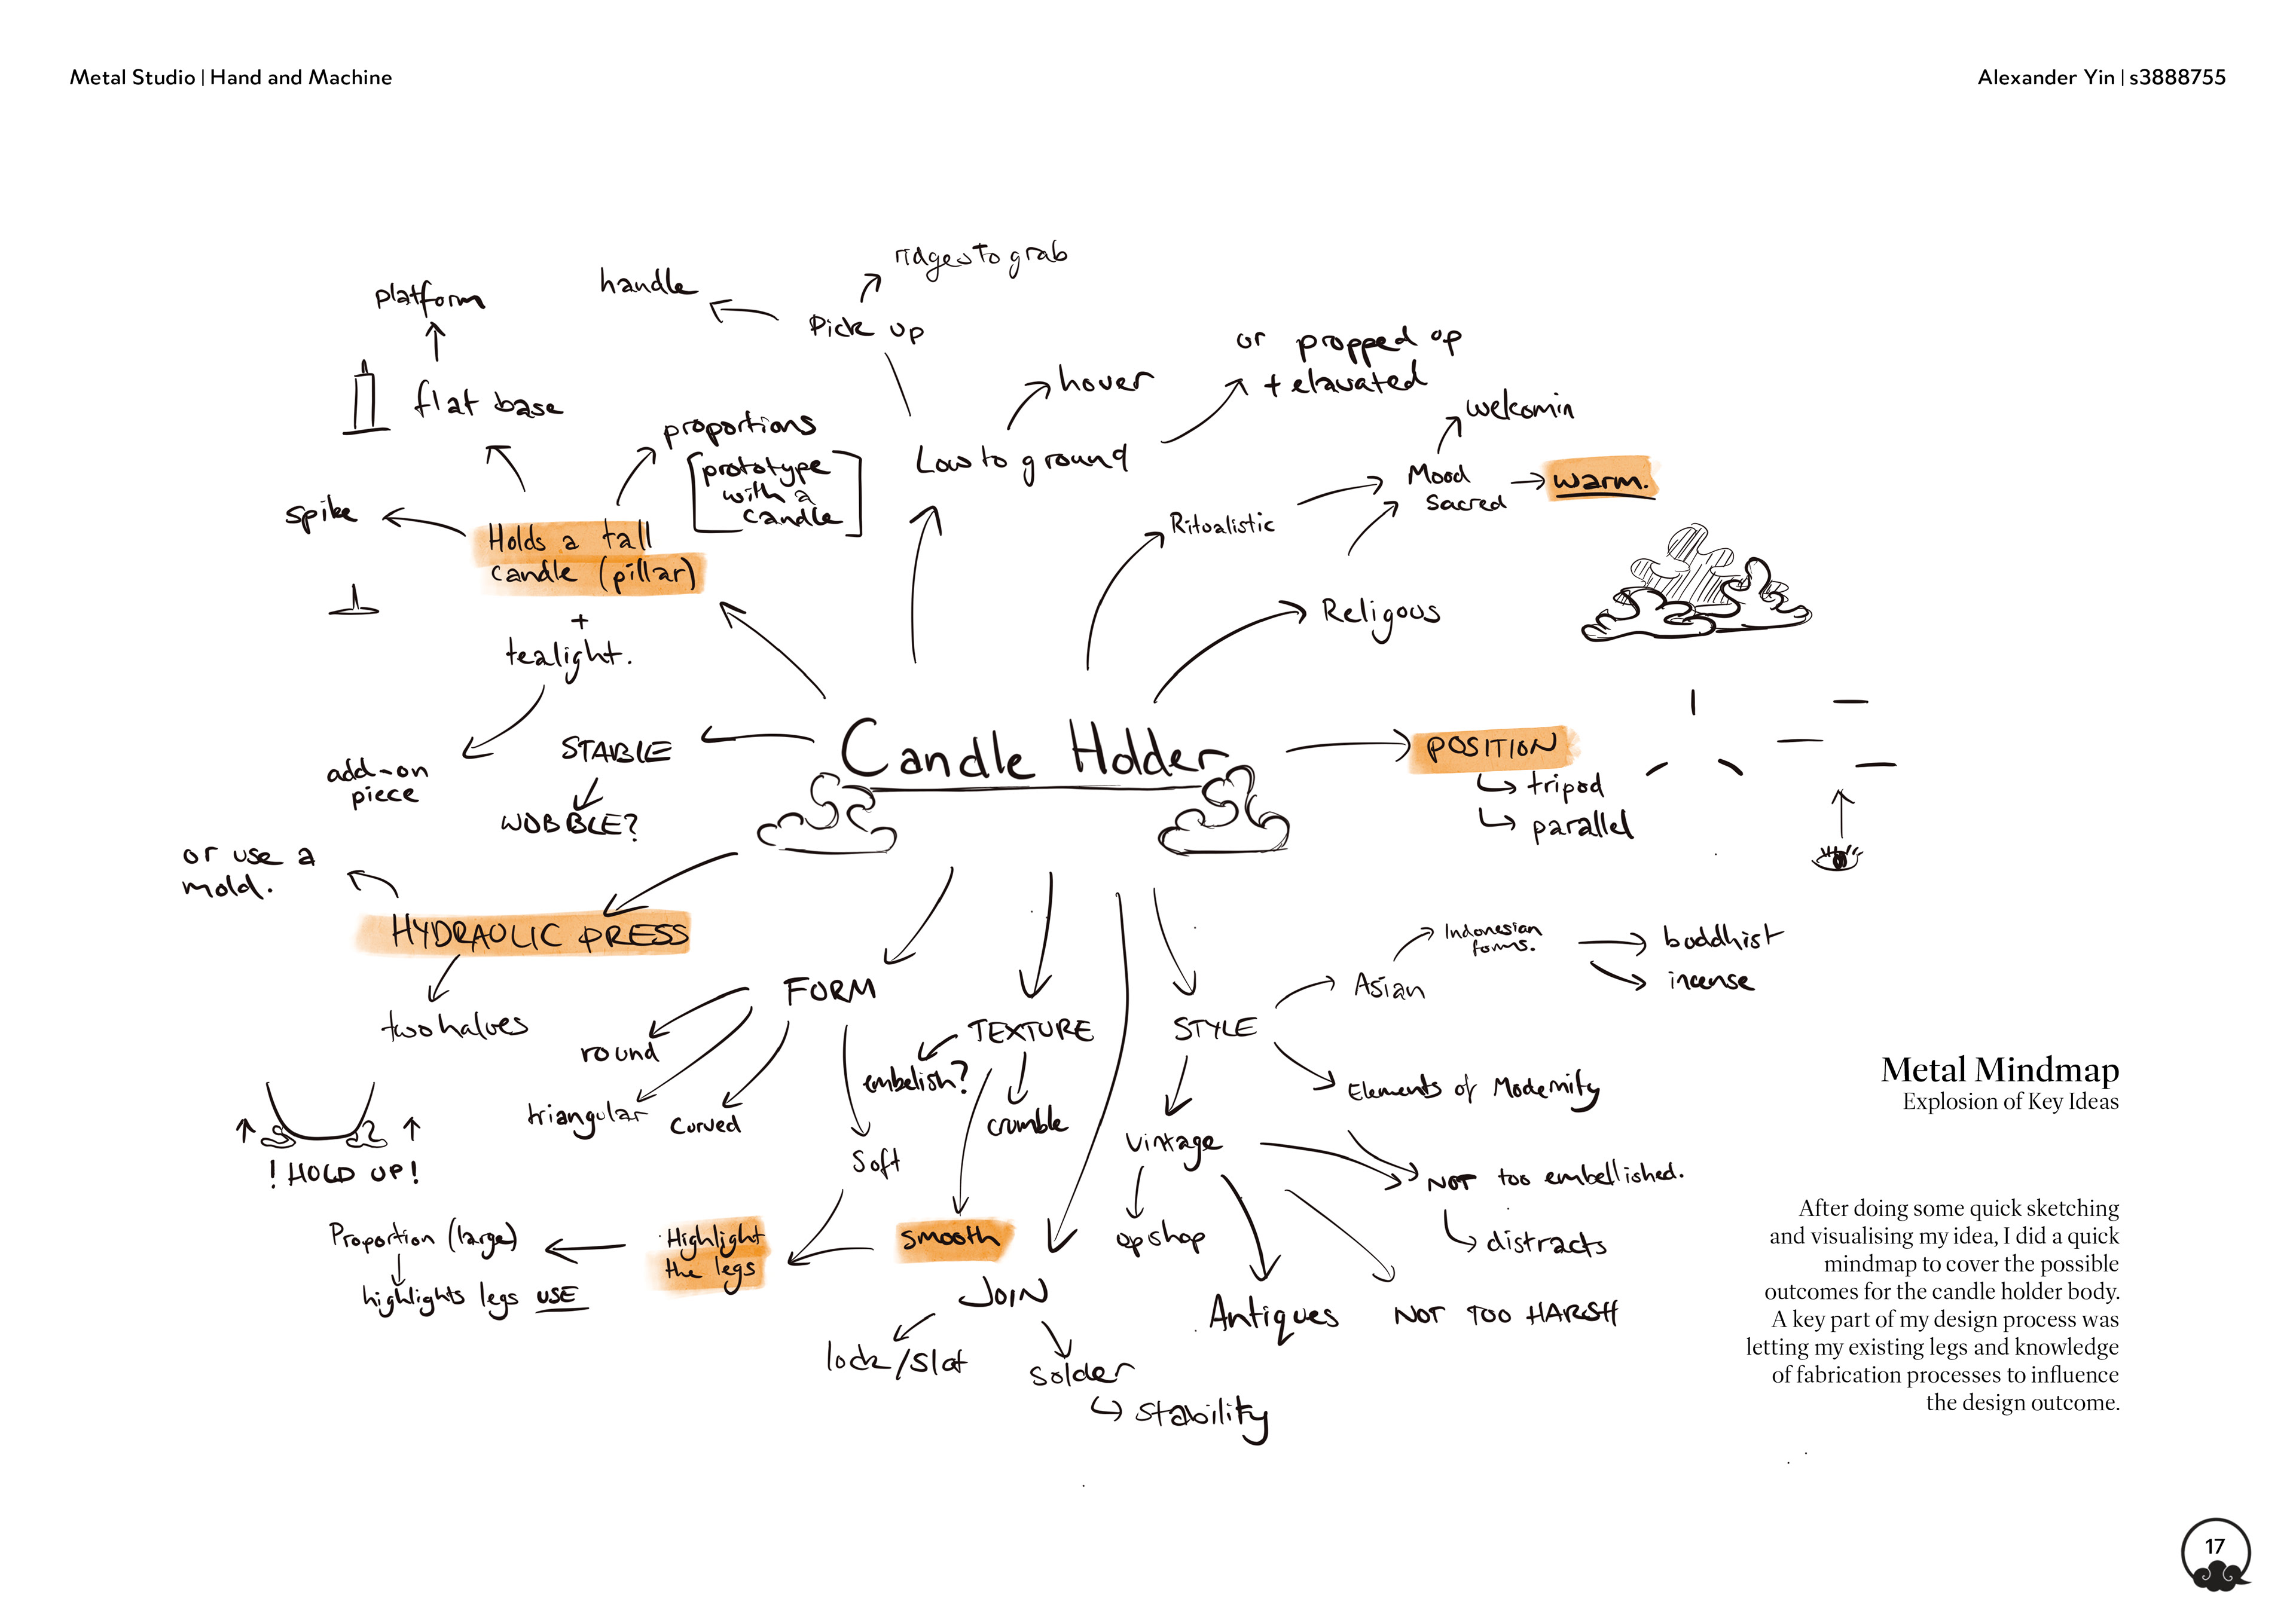 Metal Studio | Hand and Machine
Alexander Yin | s3888755
ridges to grab
handle
platform
Pick up
or propped up
+ elavated
hover
flat base
welcomin
proportions
[prototype
with a
candle]
Low to ground
Mood
Sacred
warm.
spike
Ritualistic
Holds a tall
candle (pillar)
+
tealight.
Religous
Candle Holder
STABLE
WOBBLE?
add-on
piece
POSITION
tripod
parallel
or use a
mold.
HYDRAULIC PRESS
two halves
Indonesian
forms.
buddhist
incense
Asian
FORM
round
triangular
curved
soft
TEXTURE
embelish?
crumble
smooth
STYLE
Elements of Modernity
vintage
NOT too embellished.
distracts
opshop
Antiques
NOT TOO HARSH
! HOLD UP!
Proportion (large)
highlights legs USE
Highlight
the legs
JOIN
lock/slot
solder
stability
Metal Mindmap
Explosion of Key Ideas
After doing some quick sketching
and visualising my idea, I did a quick
mindmap to cover the possible
outcomes for the candle holder body.
A key part of my design process was
letting my existing legs and knowledge
of fabrication processes to influence
the design outcome.
17